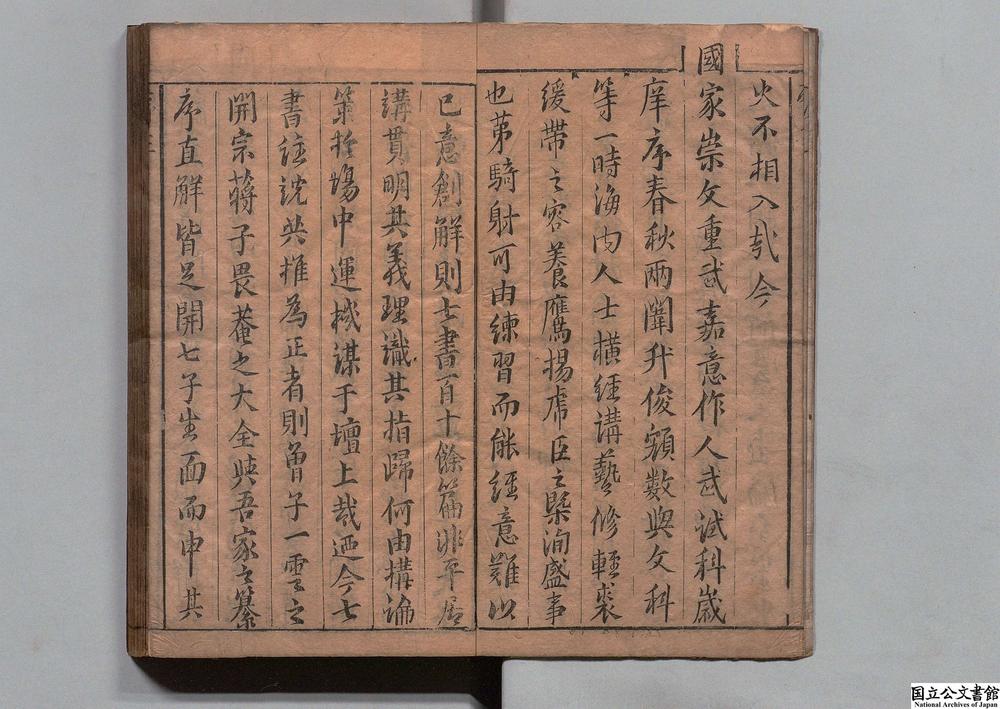 火不相入哉今
國家崇文重武嘉意作人武試科歲
庠序春秋兩闈升俊額數與文科
等一時海內人士橫經講藝修輕裘
緩帶之容養鷹揚虎臣之槩洵盛事
也第騎射可由練習而能經意難以
已意創解則七書百十餘篇非平居
講貫明其義理識其指歸何由搆論
策於場中運機謀于壇上哉迺今七
書註說共推為正者則曾子一雲之
開宗蔣子畏菴之大全與吾家之纂
序直解皆足開七子生面而申其
国立公文書館
National Archives of Japan